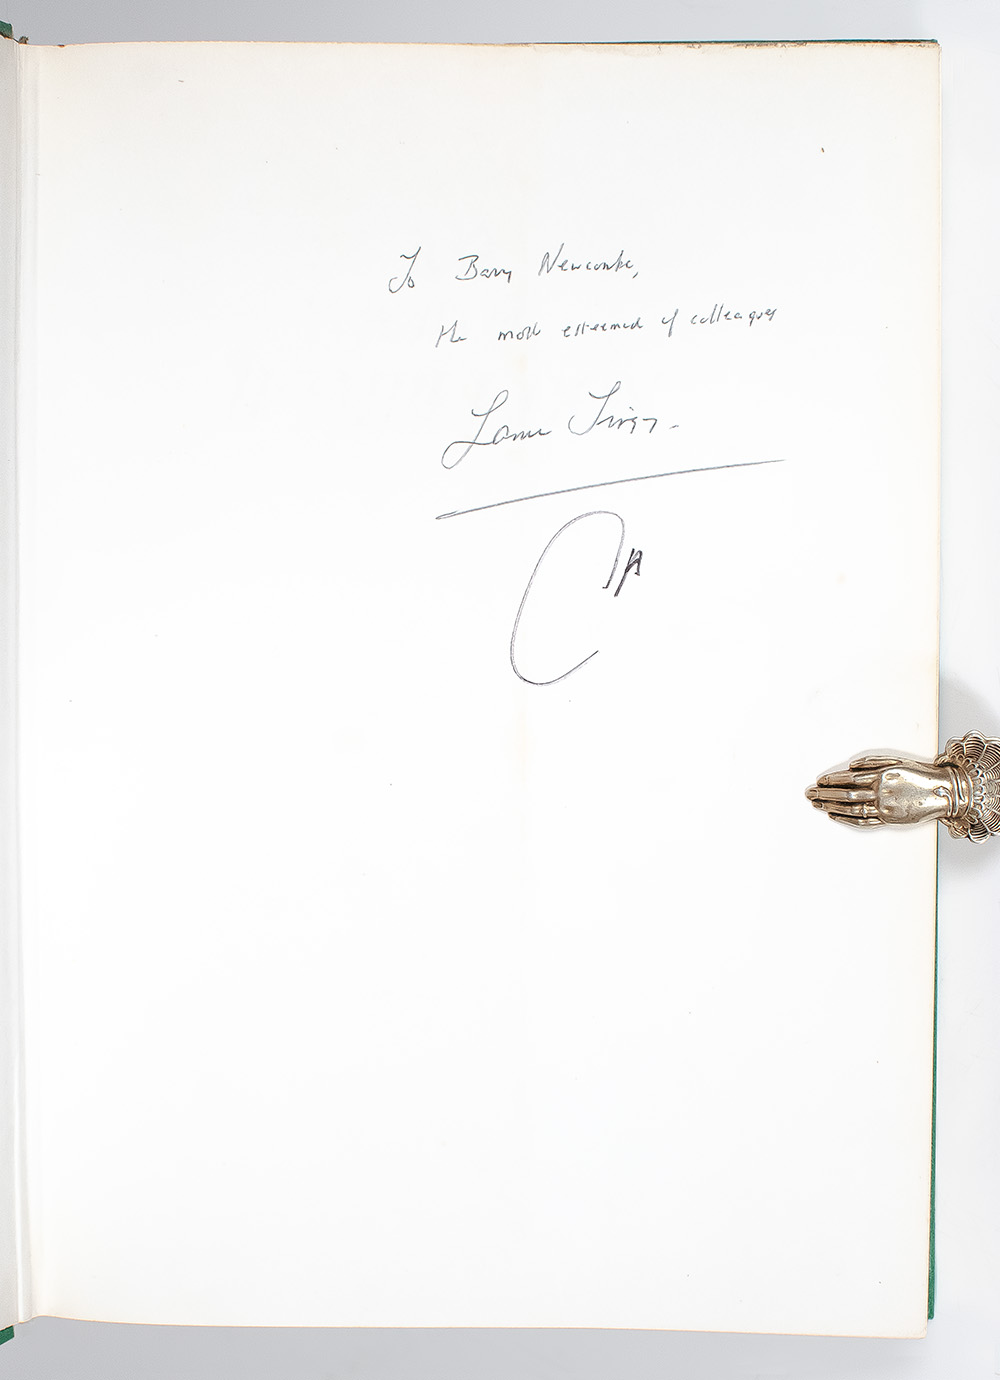 To Barry Newcombe,
the most esteemed of colleagues
Lance Tingay.